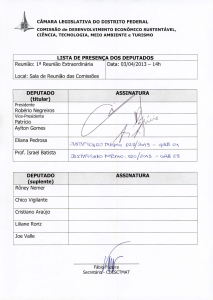 CÂMARA LEGISLATIVA DO DISTRITO FEDERAL
COMISSÃO de DESENVOLVIMENTO ECONÔMICO SUSTENTÁVEL,
CIÊNCIA, TECNOLOGIA, MEIO AMBIENTE e TURISMO
LISTA DE PRESENÇA DOS DEPUTADOS
Reunião: 1ª Reunião Extraordinária Data: 03/04/2013 – 14h
Local: Sala de Reunião das Comissões
DEPUTADO ASSINATURA
(titular)
Presidente
Robério Negreiros
Vice-Presidente
Patrício
Aylton Gomes
Eliana Pedrosa
Prof. Israel Batista
DEPUTADO ASSINATURA
(suplente)
Rôney Nemer
Chico Vigilante
Cristiano Araújo
Liliane Roriz
Joe Valle
Secretária- CDESCTMAT